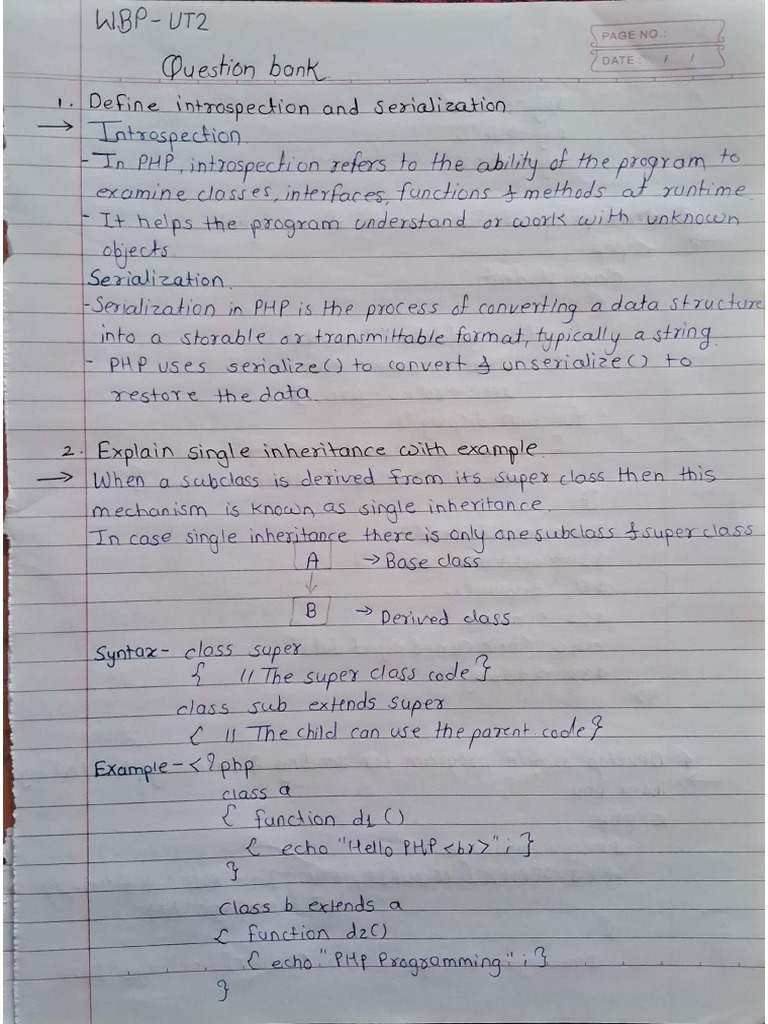 WBP-UT2
PAGE NO.:
DATE: / /
Question bank
1. Define introspection and serialization
→ Introspection
- In PHP, introspection refers to the ability of the program to
examine classes, interfaces, functions & methods at runtime.
- It helps the program understand or work with unknown
objects
Serialization
- Serialization in PHP is the process of converting a data structure
into a storable or transmittable format, typically a string.
- PHP uses serialize() to convert & unserialize() to
restore the data.
2. Explain single inheritance with example.
→ When a subclass is derived from its super class then this
mechanism is known as single inheritance.
In case single inheritance there is only one subclass & super class
A → Base class
↓
B → Derived class
Syntax- class super
{ // The super class code }
class sub extends super
{ // The child can use the parent code }
Example- <?php
class a
{ function d1 ()
{ echo "Hello PHP <br>"; }
}
class b extends a
{ function d2()
{ echo "PHP Programming"; }
}